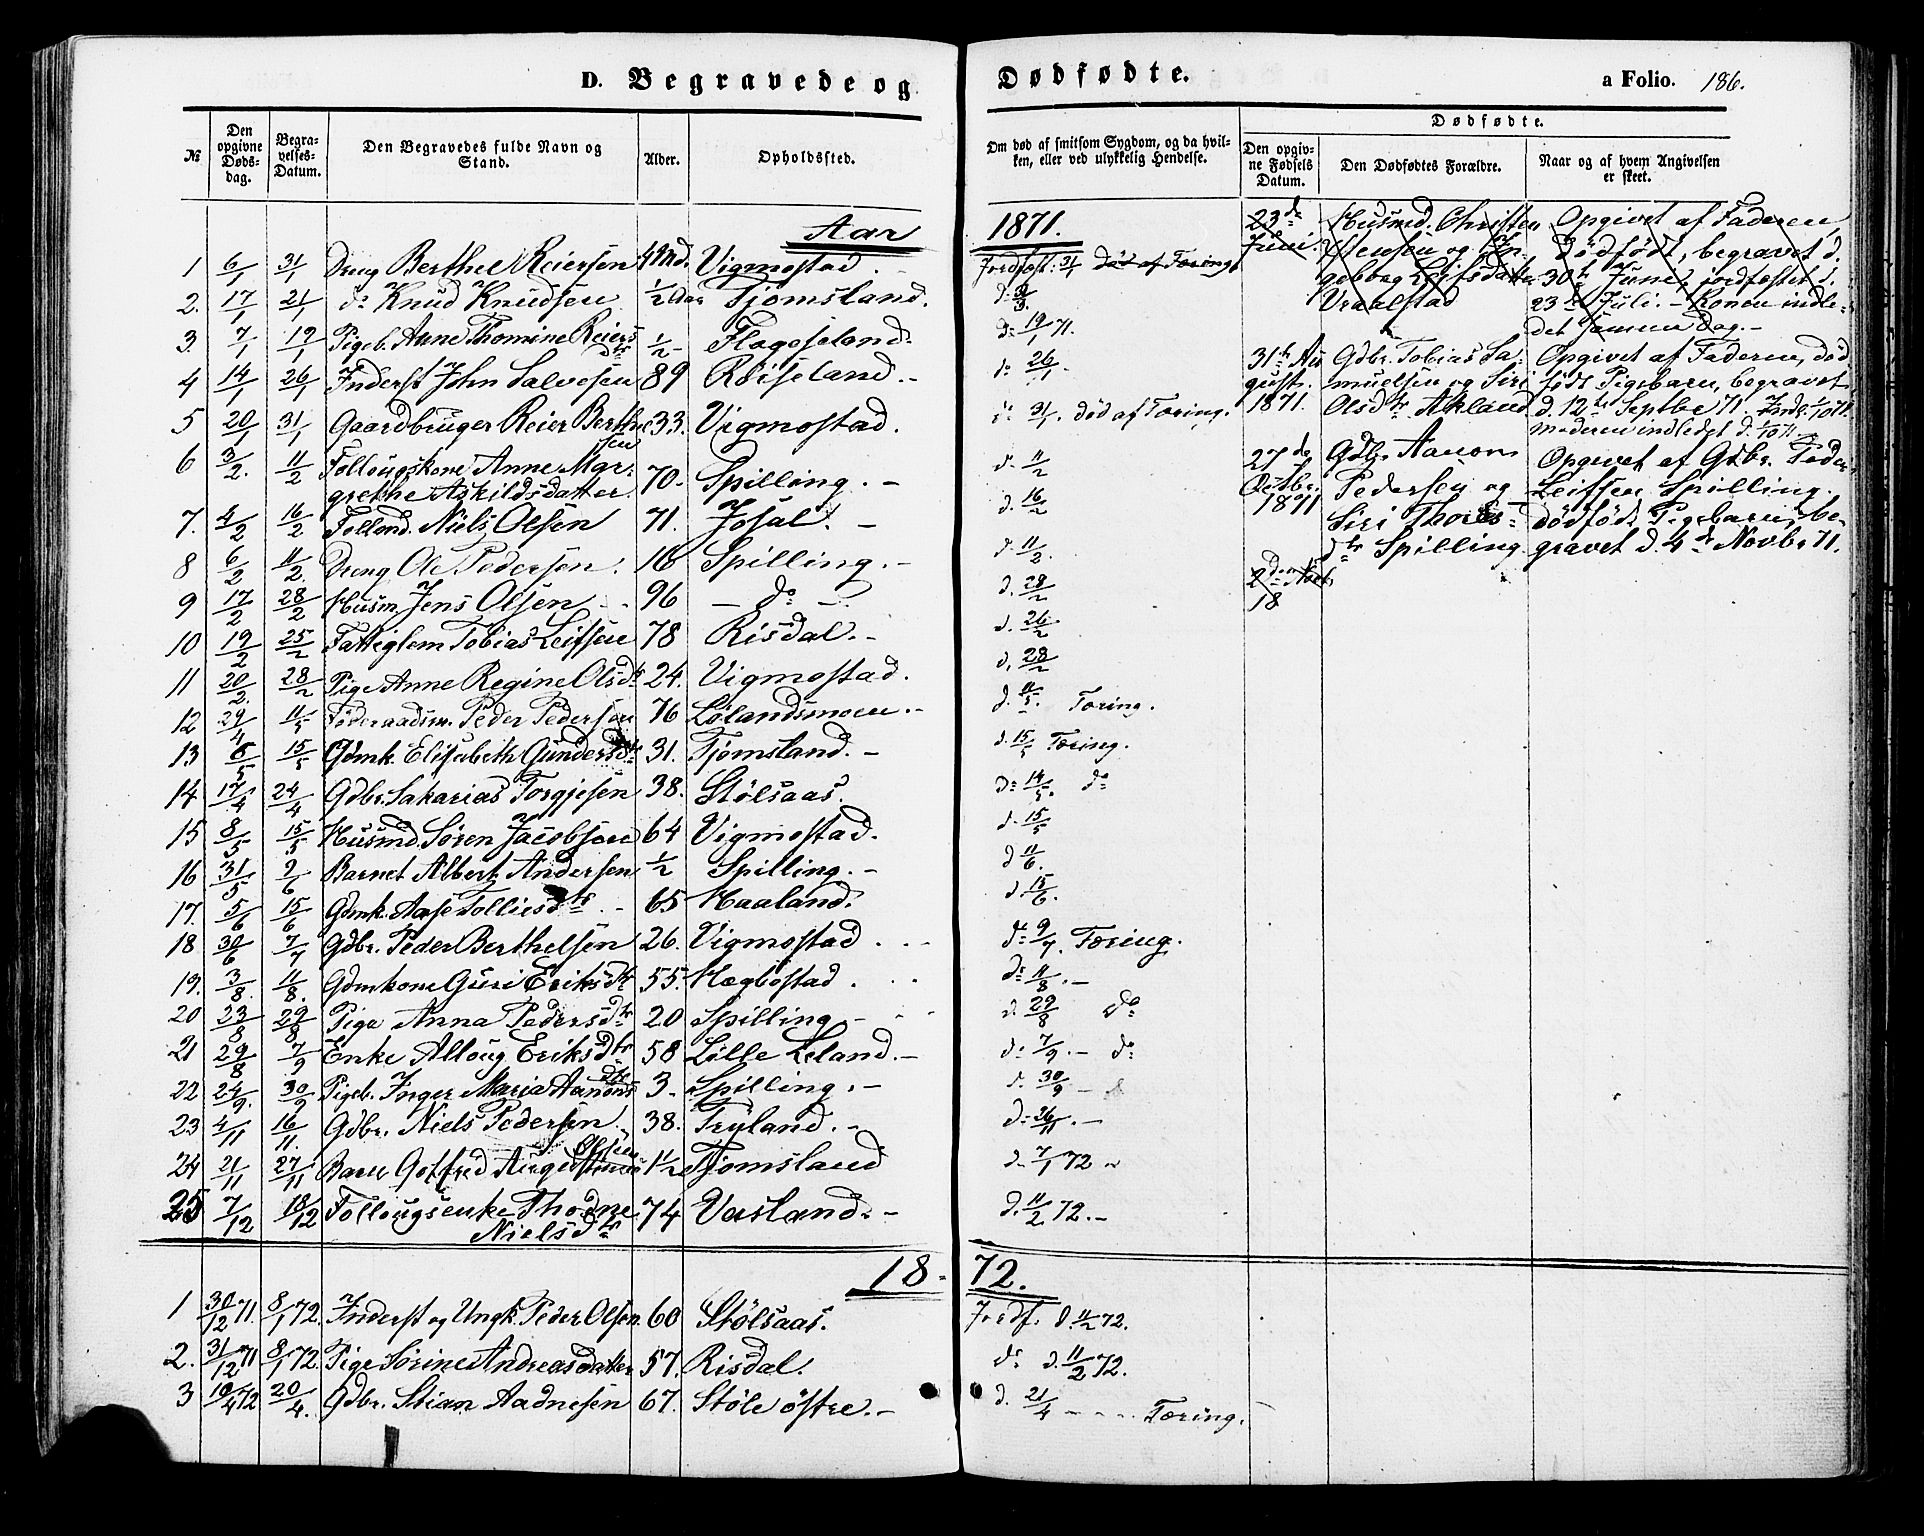 D. Begravede og Dødfødte. a Folio. 186.
№ Den opgivne Døds-dag. Begra-velses-Datum. Den Begravedes fulde Navn og Stand. Alder. Opholdssted.
Om død af smitsom Sygdom, og da hvil-ken, eller ved ulykkelig Hendelse.
Dødfødte.
Den opgiv-ne Fødsels Datum. Den Dødfødtes Forældre. Naar og af hvem Angivelsen er skeet.
Aar 1871.
1 6/1 31/1 Dreng Berthel Reiersen Vigmostad. Jordfæst. 31/1 død af Tæring.
2. 17/1 21/1 do Knud Knudsen 1/2 Dag Tjomsland. d:
3. 7/1 19/1 Pigeb. Anne Thomine Reiersdtr 1/2 Flageseland. d: 19/1 71.
4 14/1 26/1 Inderst John Salvesen 89 Røiseland. d: 26/1.
5 20/1 31/1 Gaardbruger Reier Berthelsen 33. Vigmostad. d: 31/1. død af Tæring.
6 3/2. 11/2 Follougskone Anne Mar-
grethe Askildsdatter. 70. Spilling. d. 11/2
7. 4/2 16/2 Follond. Niels Olsen 71. Josal. d. 16/2
8 6/2 11/2. Dreng Ole Pedersen. 16 Spilling. d. 11/2.
9 17/2 28/2 Husm. Jens Olsen 96 do d. 28/2
10 19/2 25/2 Fattiglem Tobias Leifsen 78 Risdal. d. 26/2
11 20/2. 28/2 Pige Anne Regine Olsdtr 24. Vigmostad. d. 28/2
12 29/4 11/5 Føderaadsm. Peder Pedersen 76 Lølandsmoen. d. 11/5. Tæring.
13 6/5 15/5 Gdmk. Elisabeth Gundersdtr 31. Tjomsland. d. 15/5 Tæring.
14 17/4 24/4 Gdbr. Sakarias Torgjesen 38. Stølsaas. d: 14/5. do
15 8/5 15/5 Husmd. Søren Jacobsen 64 Vigmostad. d. 15/5
16 31/5 9/6 Barnet Albert Andersen 1/2 Spilling. d 11/6.
17. 5/6 15/6 Gdmk. Aase Tolliesdtr 65 Haaland. d. 15/6.
18 30/6 7/7 Gdbr. Peder Berthelsen 26. Vigmostad. d: 9/7. Tæring.
19. 3/8. 11/8. Gdmkone Guri Eriksdtr 55. Hægbostad. d: 11/8.
20 23/8 29/8 Pige Anna Pedersdtr 20 Spilling. d. 29/8 do
21 29/8 7/9 Enke Alloug Eriksdtr 58 Lille Leland. d: 7/9. do
22 24/9. 30/9 Pigeb. Inger Maria Aanonsdtr 3. Spilling. d. 30/9
23 4/11 16/11. Gdbr. Niels Pedersen. 38. Tryland. d: 26/11.
24 21/11 27/11 Barn Gotfred August Olsen 1 1/2 Tjomsland d. 7/1 72
25 7/12 18/12 Follougsenke Thodne
Nielsdtr 74 Vasland. d. 11/2 72.
23de Juni. Husmd. Christen Stensen og In-
geborg Leifsdatter Vraalstad
Opgivet af Faderen,
Dødfødt, begravet d.
30te June, jordfæstet d.
23de Juli. - Konen indle-
det samme Dag. -
31te Au
gust. 1871. Gdbr. Tobias Sa-
muelsen og Siri
Olsdtr Akland
Opgivet af Faderen, død
født Pigebarn, begravet
d. 12te Septbr 71
Moderen indledet d. 1/10 71
27de
Octbr.
1871 Gdbr. Aanon
Pedersen og
Siri Thores-
dtr Spilling.
Opgivet af Gdbr. Peder
Leifsen Spilling.
dødfødt Pigebarn, be-
gravet d. 4de Novbr 71.
2den
18
18 - 72.
1 30/12 71. 8/1 72. Inderst og Ungk. Peder Olsen. 60 Stølsaas. Jordf. d. 11/2 72.
2. 31/12 71 8/1 72. Pige Sørine Andreasdatter 57. Risdal. do d. 11/2 72.
3 10/4 72 20/4. Gdbr. Stian Aadnesen 67. Støle østre. d. 21/4 Tæring.